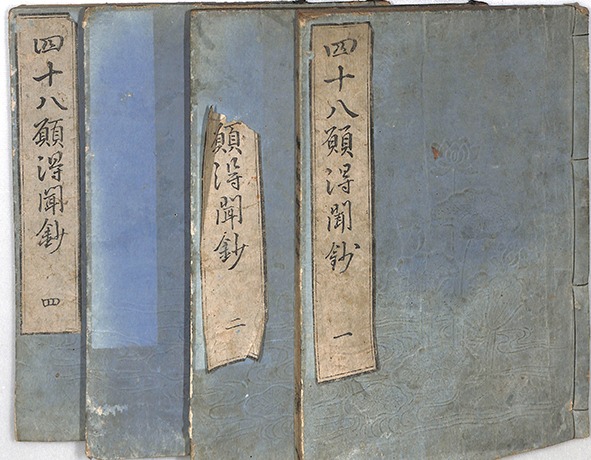 四十八願得聞鈔 一
願得聞鈔 二
四十八願得聞鈔 四